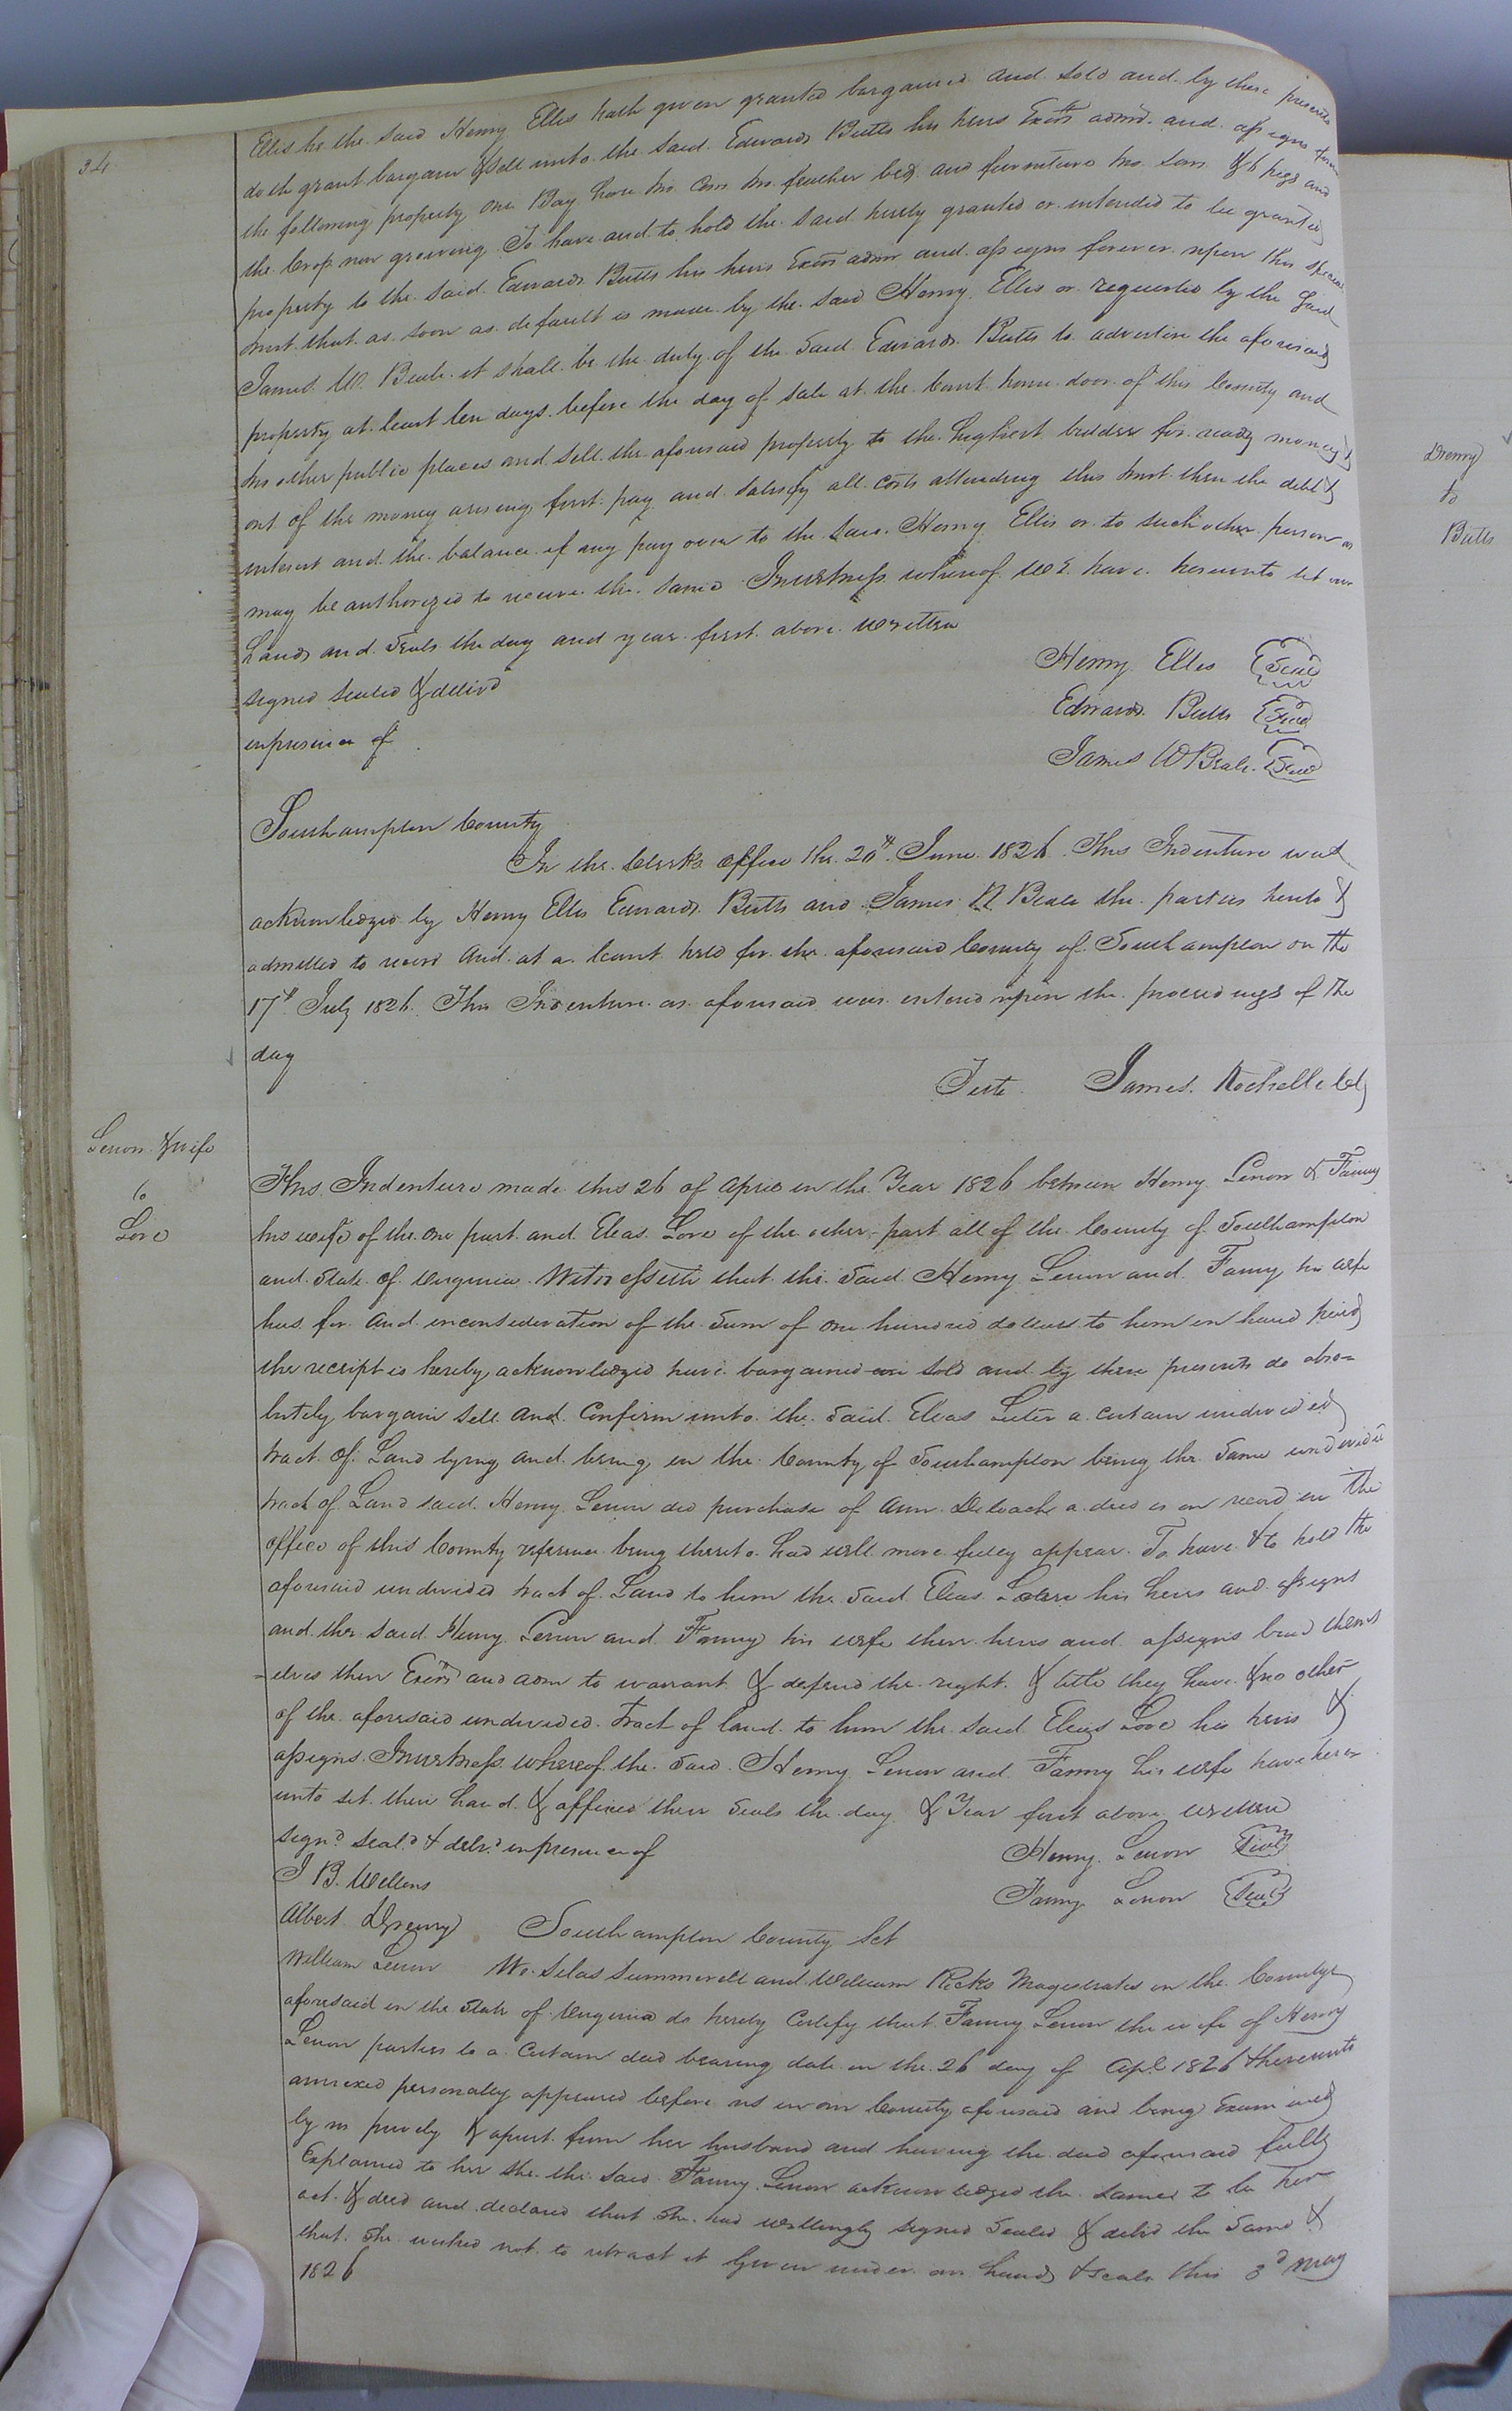 34
Ellis he the said Henry Ellis hath given granted bargained and sold and by these presents
doth grant bargain & sell unto the said Edward Butts his heirs Exors admrs and assigns forever
the following property one Bay horse two Cows two feather beds and furniture two sows & 6 pigs and
the Crop now growing To have and to hold the said hereby granted or intended to be granted
property to the said Edward Butts his heirs Exors admr and assigns forever upon this special
trust that as soon as default is made by the said Henry Ellis or requested by the said
James W. Beale it shall be the duty of the said Edward Butts to advertise the aforesaid
property at least ten days before the day of sale at the Court house door of this County and
two other public places and sell the aforesaid property to the highest bidder for ready money &
out of the money arising first pay and satisfy all costs attending this trust then the debt &
interest and the balance if any pay over to the said Henry Ellis or to such other person as
may be authorized to receive the same In witness whereof we have hereunto set our
hands and seals the day and year first above written
signed sealed & delivd
in presence of
Henry Ellis Seal
Edward Butts Seal
James W Beale Seal
Southampton County
In the Clerks office the 20th June 1826 This Indenture was
acknowledged by Henry Ellis Edward Butts and James W Beale the parties hereto &
admitted to record And at a Court held for the aforesaid County of Southampton on the
17th July 1826 This Indenture as aforesaid was entered upon the proceedings of the
day
Teste James Rochelle Clk
Lenow & wife
to
Love
This Indenture made this 26 of April in the Year 1826 between Henry Lenow & Fanny
his wife of the one part and Elias Love of the other part all of the County of Southampton
and State of Virginia Witnesseth that the said Henry Lenow and Fanny his wife
has for and in consideration of the Sum of one hundred dollars to him in hand paid
the receipt is hereby acknowledged have bargained sold and by these presents do abso=
lutely bargain sell and Confirm unto the said Elias a certain undivided
tract of Land lying and being in the County of Southampton being the same undivided
tract of Land said Henry Lenow did purchase of Ann Deloach a deed is on record in the
office of this County reference being thereto had will more fully appear To have & to hold the
aforesaid undivided tract of Land to him the said Elias his heirs and assigns
and the said Henry Lenow and Fanny his wife their heirs and assigns bind thems
=elves their Exors and adm to warrant & defend the right & title they have & no other
of the aforesaid undivided tract of land to him the said Elias Love his heirs &
assigns In witness whereof the said Henry Lenow and Fanny his wife have here
unto set their hand & affixed their seals the day & Year first above written
Signd Seald & deld in presence of
Henry Lenow Seal
J B. Wellons
Fanny Lenow Seal
Albert Drewry Southampton County Sct
William Lenow We Silas Summerell and William Ricks Magistrates in the County
aforesaid in the State of Virginia do hereby Certify that Fanny Lenow the wife of Henry
Lenow parties to a Certain deed bearing date on the 26 day of Apl 1826 & hereunto
annexed personally appeared before us in our County aforesaid and being Examined
by us privily & apart from her husband and having the deed aforesaid fully
Explained to her she the said Fanny Lenow acknowledged the same to be her
act & deed and declared that she had willingly signed sealed & delivd the same &
that she wished not to retract it Given under our hands & seals this 3d May
1826
Drewry
to
Butts